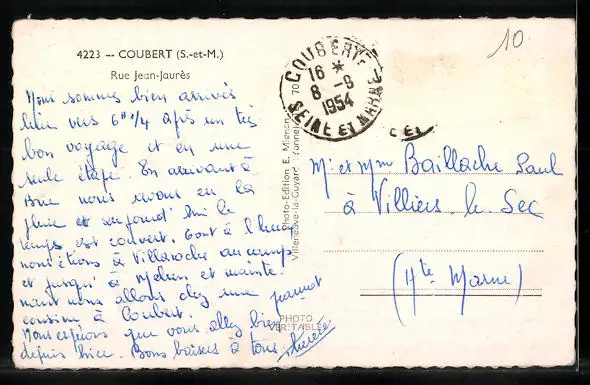 4223 — COUBERT (S.-et-M.)
Rue Jean-Jaurès
10
COUBERT
16 *
8 -9
1954
SEINE ET MARNE
Nous sommes bien arrivés
hier vers 6H 1/4 après un très
bon voyage et en une
seule étape. En arrivant à
Brie nous avons eu la
pluie et aujourd'hui le
temps est couvert.
nous étions à Villaroche au camp
et jusqu'à Melun et mainte-
nant nous allons chez une
cousine à Coubert.
Nous espérons que vous allez bien
depuis hier. Bons baisers à tous
Photo-Edition E. Mignon
Villeneuve-la-Guyard (Yonne)
PHOTO
VERITABLE
Mr et Mme Baillache Paul
à Villiers-le-Sec
(Hte Marne)